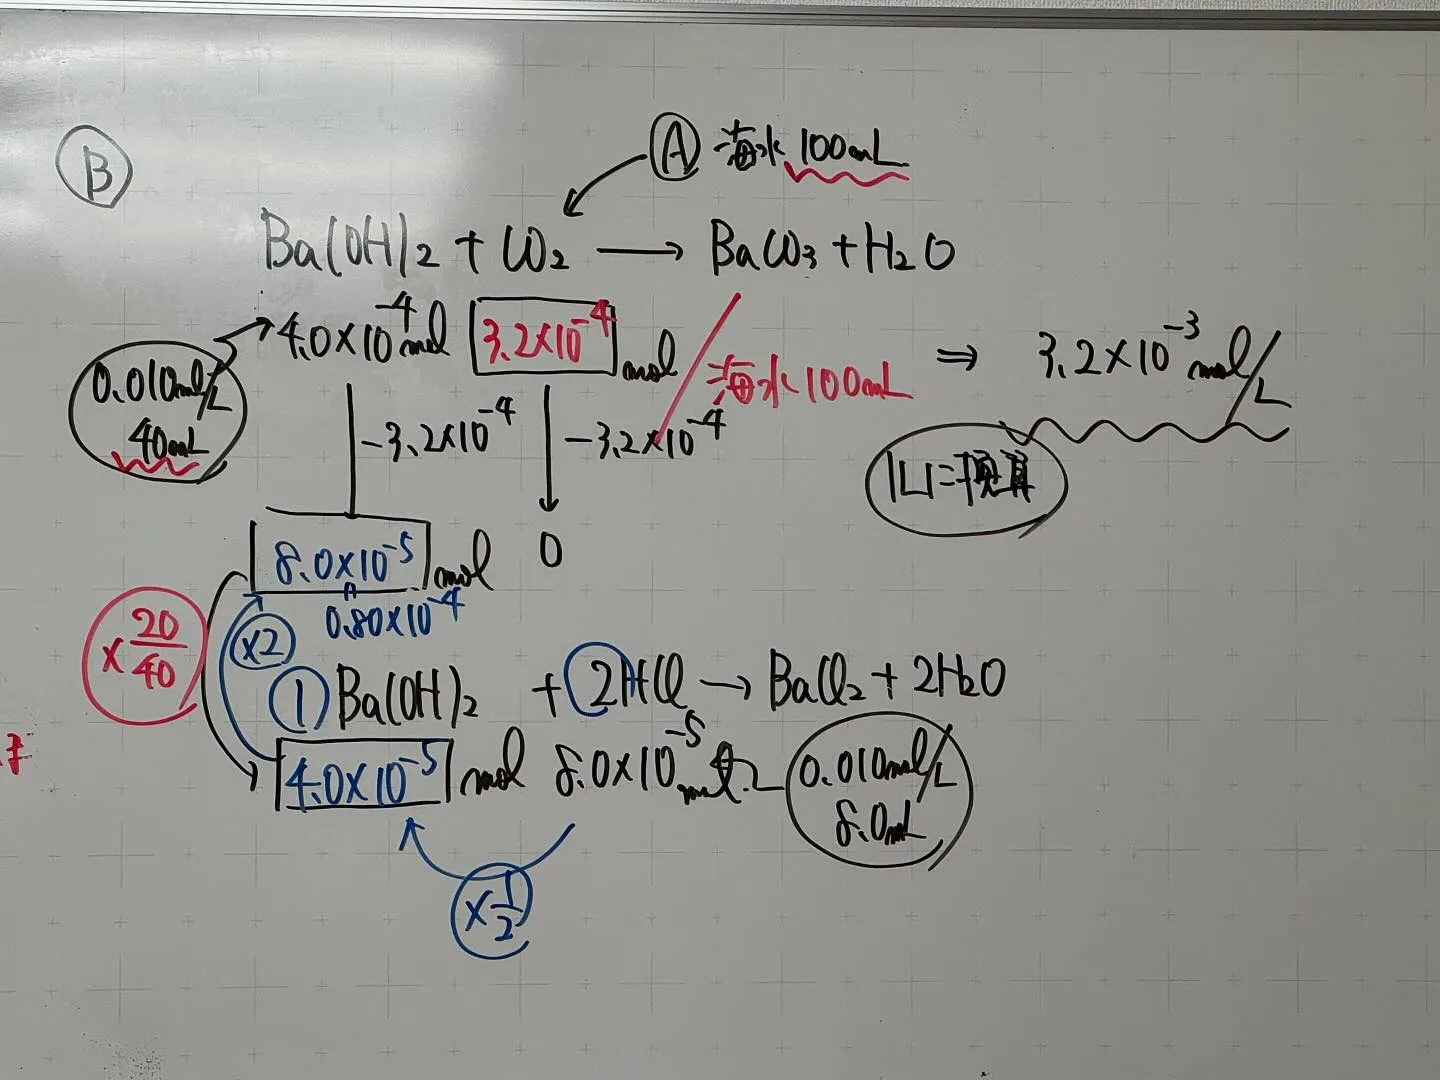 B
A 海水 100mL
Ba(OH)2 + CO2 → BaCO3 + H2O
4.0×10^-4 mol 3.2×10^-4 mol / 海水100mL ⇒ 3.2×10^-3 mol/L
0.010mol/L
40mL
-3.2×10^-4 -3.2×10^-4
1Lに換算
8.0×10^-5 mol 0
0.80×10^-4
×20/40
×2
1 Ba(OH)2 + 2HCl → BaCl2 + 2H2O
4.0×10^-5 mol 8.0×10^-5 mol
0.010mol/L
8.0mL
×1/2